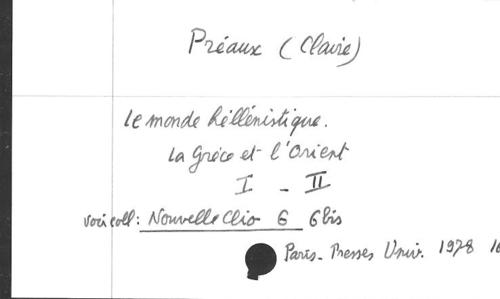 Préaux (Claire)
Le monde héllénistique.
La Grèce et l'Orient
I - II
voir coll: Nouvelle Clio 6 6bis
Paris - Presses Univ. 1978